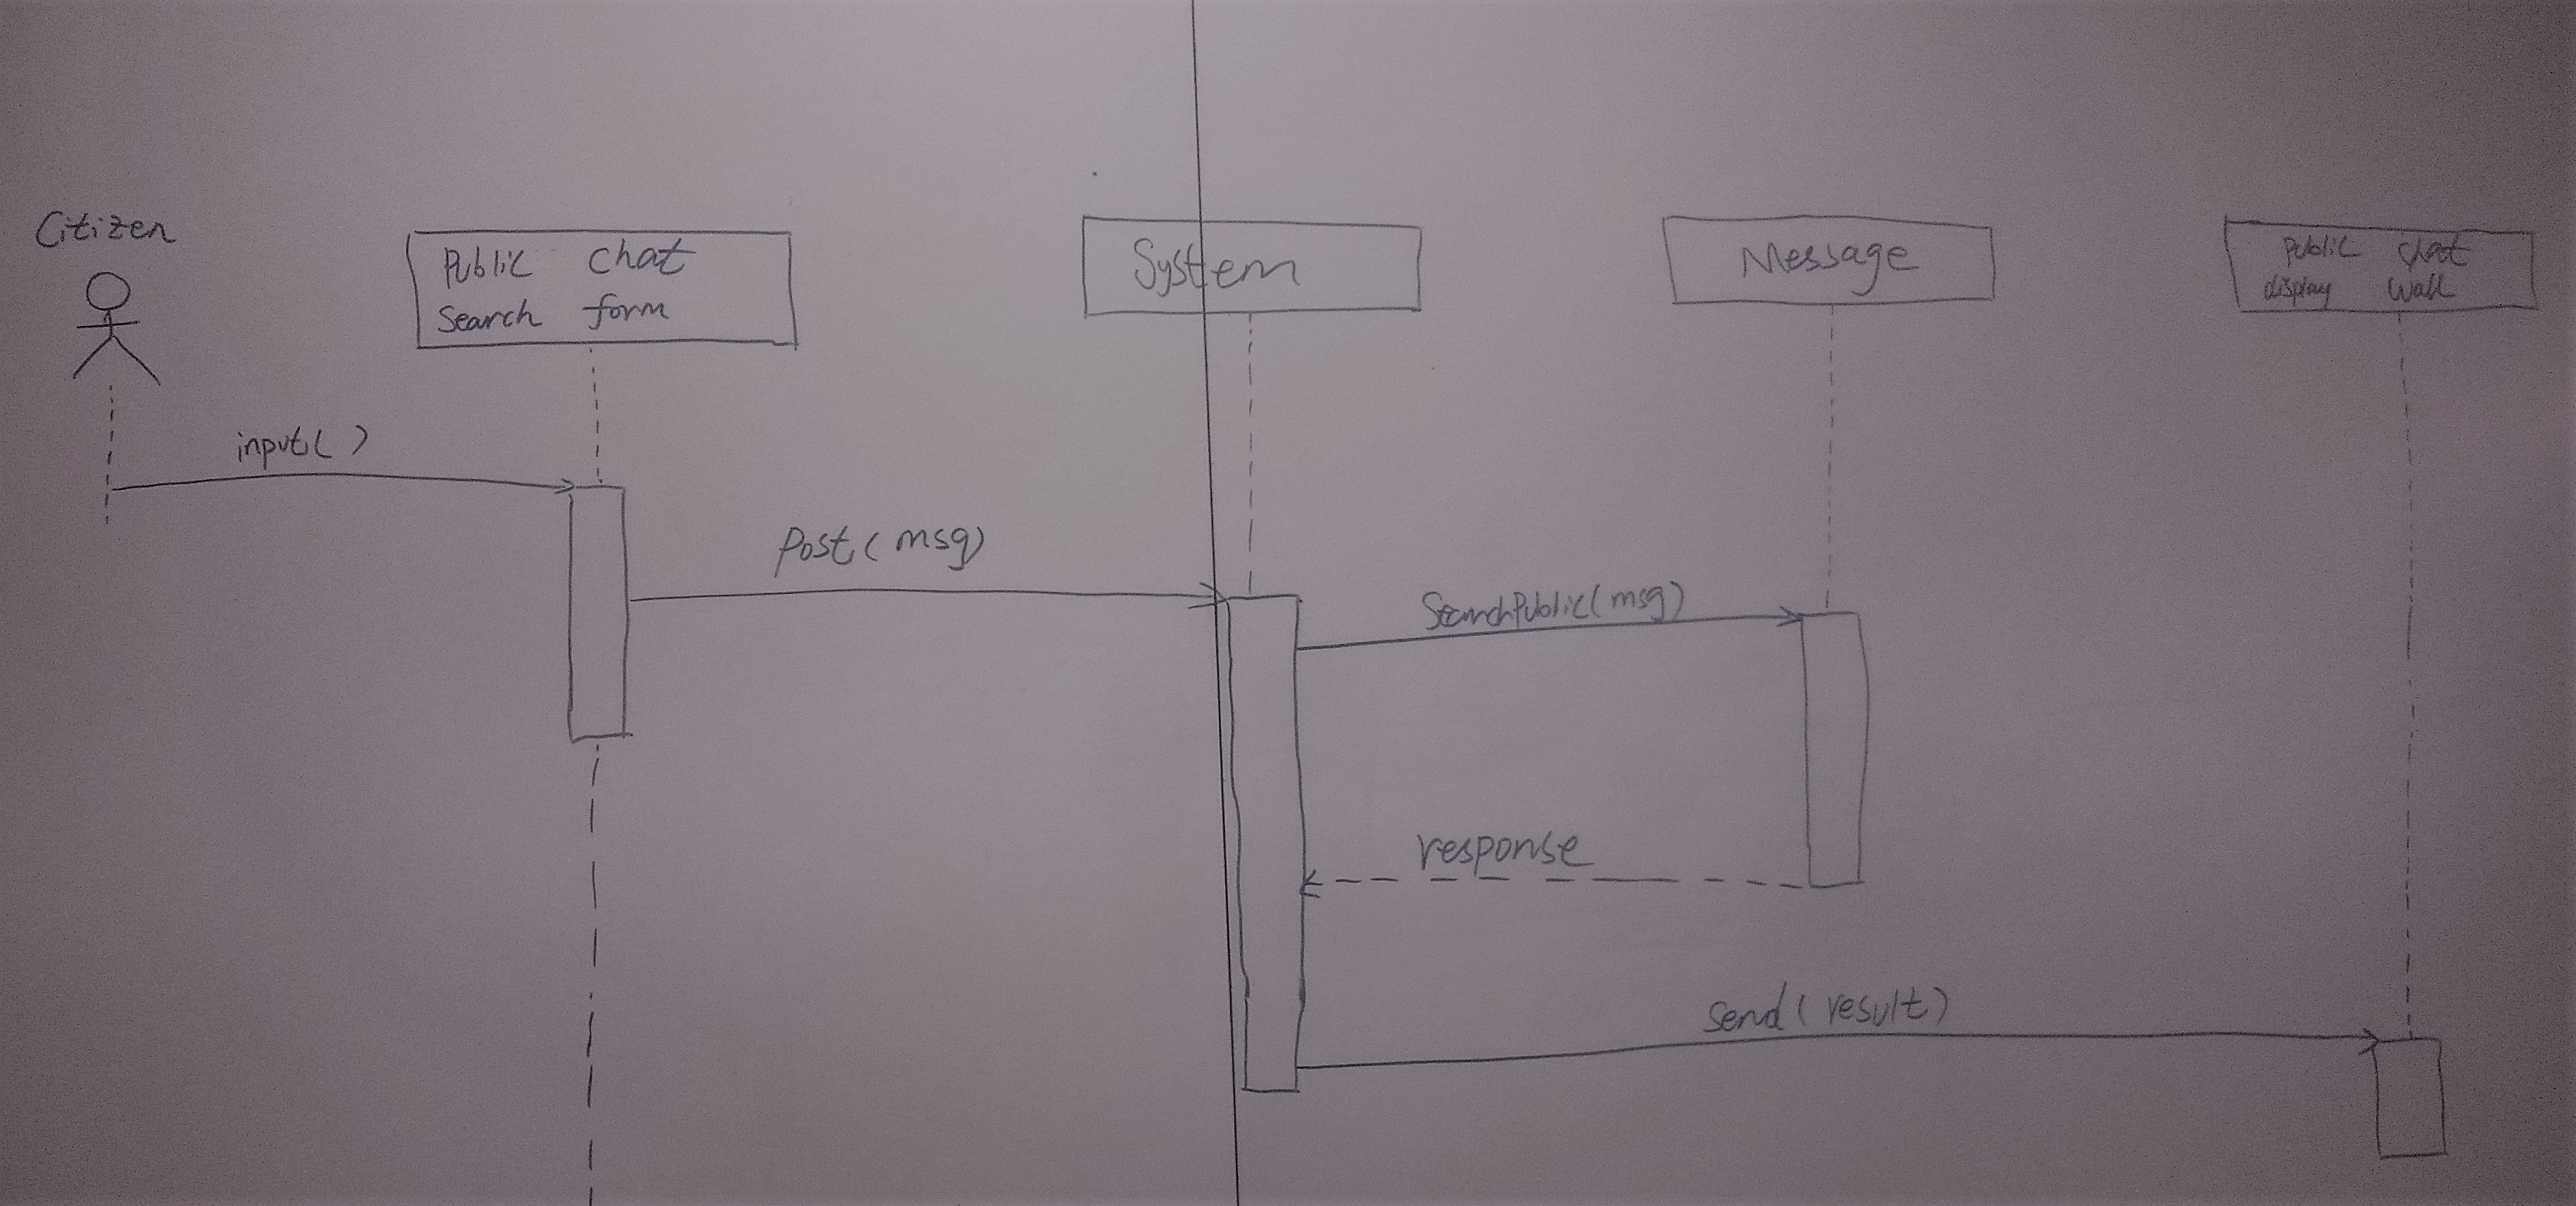 Citizen
Public chat
Search form
System
Message
Public chat
display wall
input( )
Post(msg)
SearchPublic(msg)
response
Send(result)